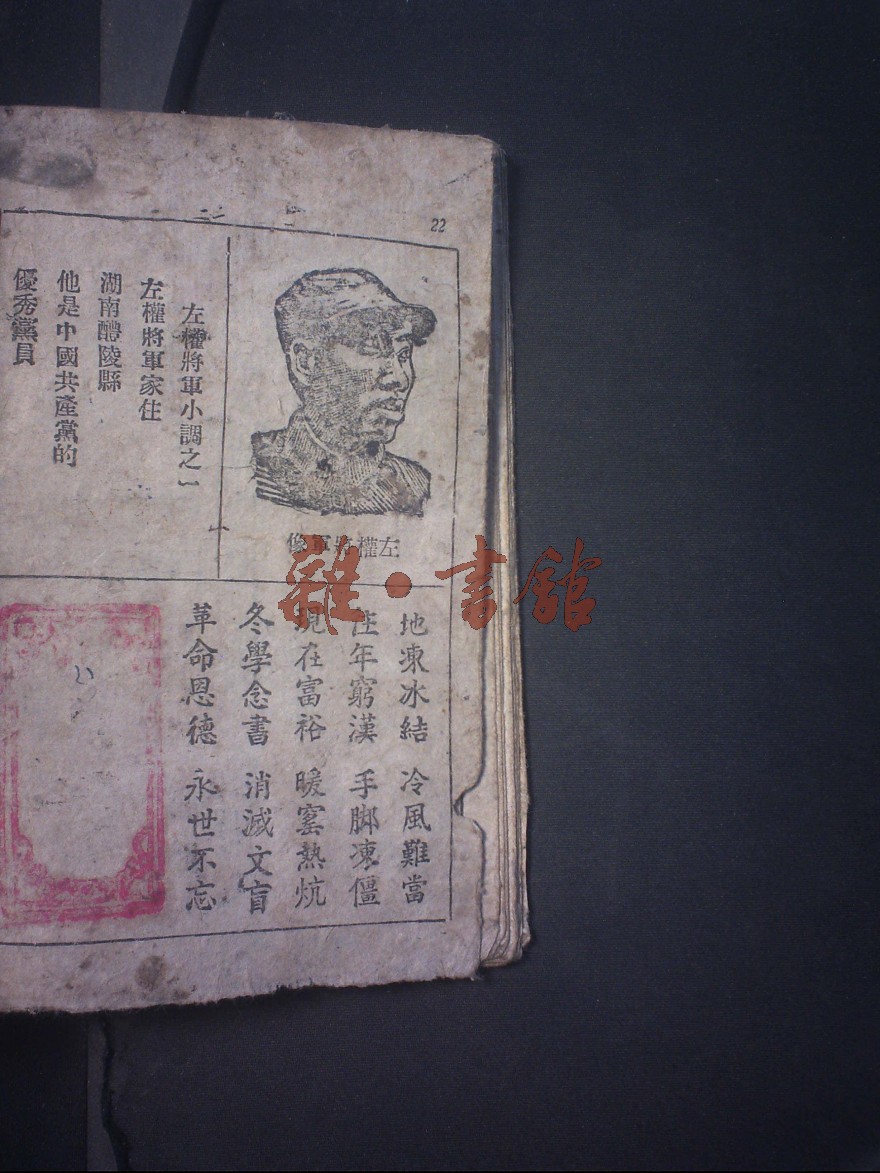 22
左權將軍像
左權將軍小調之一
左權將軍家住
湖南醴陵縣
他是中國共產黨的
優秀黨員
地凍冰結 冷風難當
往年窮漢 手脚凍僵
現在富裕 暖窰熱炕
冬學念書 消滅文盲
革命恩德 永世不忘
雜·書舘